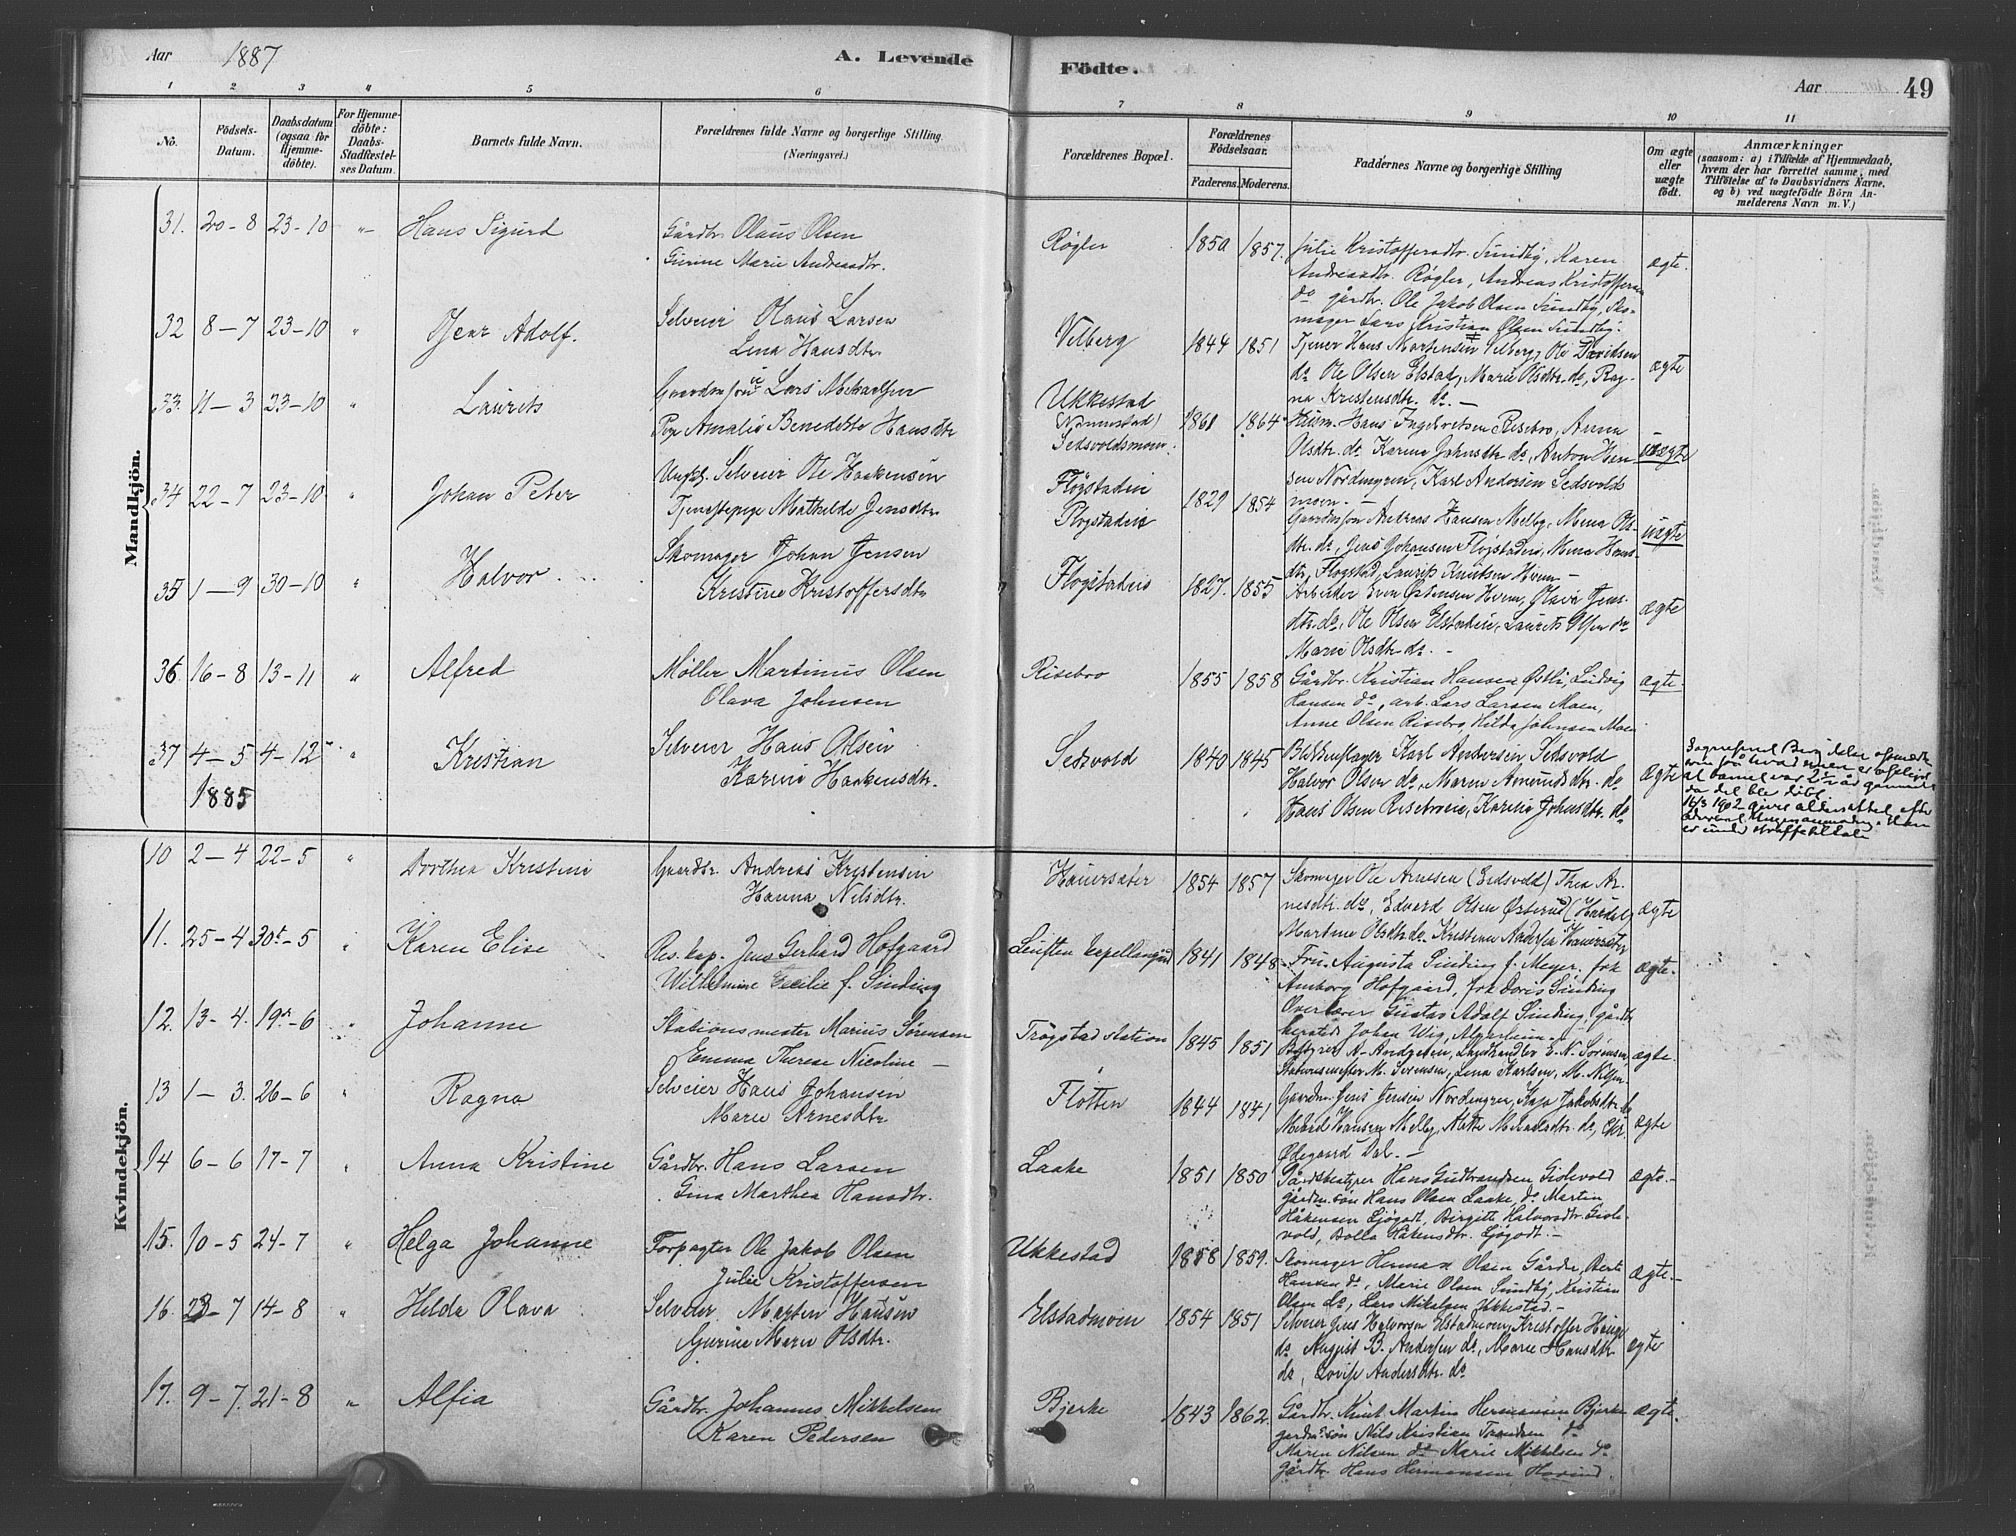 Aar 1887 A. Levende Födte. Aar 49
1 2 3 4 5 6 7 8 9 10 11
No.
Födsels-Datum.
Daabsdatum (ogsaa for Hjemme-döbte).
For Hjemme-döbte: Daabs-Stadfæstel-ses Datum.
Barnets fulde Navn.
Forældrenes fulde Navne og borgerlige Stilling.
(Næringsvei.)
Forældrenes Bopæl.
Forældrenes Födselsaar.
Faderens. Moderens.
Faddernes Navne og borgerlige Stilling
Om ægte eller uægte födt.
Anmærkninger
(saasom: a) i Tilfælde af Hjemmedaab,
hvem der har forrettet samme, med
Tilföielse af to Daabsvidners Navne.
og b) ved uægtefödte Börn An-
melderens Navn m. V.)
Mandkjön.
31. 20-8 23-10 "- Hans Sigurd
Gårdbr. Olaus Olsen
Gurine Marie Andreasdtr.
Røgler 1850 1857.
Julie Kristoffersdtr. Sundby, Karen
Andreasdtr. Røgler, Andreas Kristoffersen
do gårdbr. Ole Jakob Olsen Sundby, Sko-
mager Lars Kristian Olsen Sundby.
ægte.
32 8-7 23-10 " Adolf.
Selveier Olaus Larsen
Lena Hansdtr.
Velberg 1844 1851
Tjener Hans Martensen Velberg, Ole Davidsen
do Ole Olsen Elstad, Marie Olsdtr. do, Rag-
na Kristensdtr. do. -
ægte
33. 11-3 23-10 " Laurits
Lars
Pige Amalie Benedikte Hansdtr
Ukkestad
Sedsvoldsmoen.
1861 1864
Husm. Hans Ingebretsen Risebro, Anna
Olsdtr. do Karine Johnsdtr do, Anton
Nordengren, Karl Andersen Sedsvolds
moen. -
uægte
34 22-7 23-10 " Johan Peter
Ungk. Selveier Ole Haakensen
Tjenestepige Mathilde Jensdtr.
Flogstadeie
Flogstadeie
1829 1854
Gaardmsøn Andreas Hansen Melby, Mina Ols-
dtr. do, Jens Johansen Flogstadeie, Mina Hans-
dtr, Flogstad, Laurits Knutsen Hvem -
uægte
35 1-9 30-10 " Halvor
Skomager Johan Jensen
Kristine Kristoffersdtr
Flogstadeie 1827. 1855
Arbeider Even Østensen Hvem, Olava Jens-
dtr. do, Ole Olsen Elstadeie, Laurits Olsen do
Marie Olsdtr do. -
ægte
36. 16-8 13-11 " Alfred
Møller Martinus Olsen
Olava Johnsen
Risebro 1855 1858
Gårdbr. Kristian Hansen Østli, Ludvig
Hansen do, arb. Lars Larsen Moen,
Anne Olsen Risebro Hilda Johnsen Moen
ægte.
37 4-5 4-12 " Kristian
1885
Selveier Hans Olsen
Karine Haakensdtr.
Sedsvold 1840 1845
Karl Andersen Sedsvold
Halvor Olsen do, Maren Amundsdtr. do
Hans Olsen Risebroeie, Karine Johnsdtr. do
ægte
at barnet var 2½ år gammelt
da det blev døbt
16/3 1902
er under straffetiltale
Kvindekjön.
10 2-4 22-5 " Dorthea Kristine
Gaardbr. Andreas Kristensen
Hanna Nilsdtr.
Hauersæter 1854 1857
Skomager Ole Arnesen (Eidsvold) Thea Ar-
nesdtr. do, Edvard Olsen Østerud (Hurdal)
Martine Olsdtr do. Kristine Hauersæter
ægte
11. 25-4 30t-5 " Karen Elise
Res. kap. Jens Gerhard Hofgaard
Wilhelmine Cecilie f. Sinding
Kapellangård 1841 1848
Fru Augusta Sinding f. Meyer. frk
Amborg Hofgaard, frk Doris Sinding
Overlærer Gustav Adolf Sinding, gårdbr
Johan Wig, Algarheim -
ægte.
12. 13-4. 19n-6 " Johanne
Stationsmester Marius Sørensen
Emma Therese Nicoline -
Trøgstad station 1845 1851
A. Andresen, Landhandler E. N. Sørensen,
Stationsmester M. Sørensen, Lina Karlsen, M. Nilsen
ægte.
13 1-3. 26-6 " Ragna
Selveier Hans Johansen
Marie Arnesdtr
Flotten 1844 1841
Gaardm. Jens Jensen Nordengren, Kaja Jakobsdtr do
Hansen Melby,
Ødegaard Dal. -
ægte
14 6-6 17-7 " Anna Kristine
Gårdbr. Hans Larsen
Gina Marthea Hansdtr.
Laake 1851 1850
Gårdbestyrer Hans Gudbrandsen Gislevold
gårdm. søn Hans Olsen Laake, do Martin
Håkensen Ljøgodt, Birgitte Halvorsdtr. Gisle-
vold, Bolla Håkensdtr. Ljøgodt. -
ægte.-
15. 10-5 24-7 " Helga Johanne
Forpagter Ole Jakob Olsen
Julie Kristoffersen
Ukkestad 1858 1859.
Skomager Herman Olsen Gårder, Berte
Hansen do, Marie Olsen Sundby, Kristian
Olsen do, Lars Mikalsen Ukkestad. -
ægte.-
16. 23-7 14-8 " Hilda Olava
Selveier Morten Hansen
Gurine Marie Olsdtr.
Elstadmoen 1854 1851
Selveier Jens Halvorsen Elstadmoen, Kristoffer
do August B. Andersen do, Marie Hansdtr.
do, Lovise Andersdtr. do
ægte
17. 9-7. 21-8 " Alfia
Gårdbr. Johannes Mikkelsen
Karen Pedersen
Bjerke 1843 1862.
Gårdbr. Knut Martin Hermansen Bjerke
gårdmsøn Nils Kristian Trondsen do
Maren Nilsen do Marie Mikkelsen do
gårdbr. Hans Hermansen Hovind.
ægte.